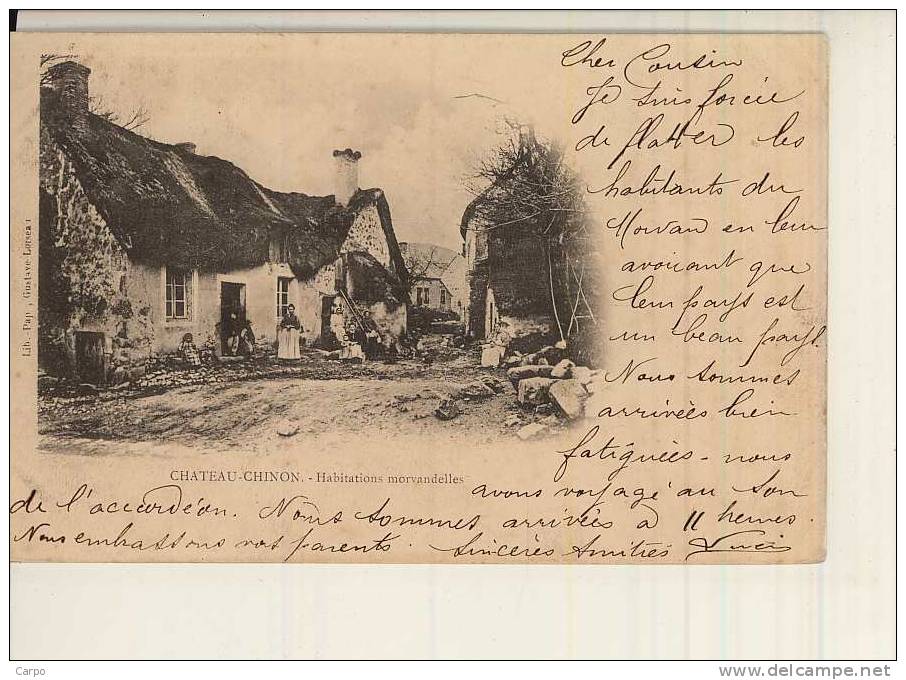 Cher Cousin
Je suis forcée
de flatter les
habitants du
Morvan en leur
avouant que
leur pays est
un beau pays.
Nous sommes
arrivées bien
fatiguées - nous
avons voyagé au son
de l'accordéon. Nous sommes arrivées à 11 heures.
Nous embrassons vos parents. Sincères Amitiés
CHATEAU-CHINON. - Habitations morvandelles
Lib. - Pap. Gustave Loiseau
Carpo
www.delcampe.net